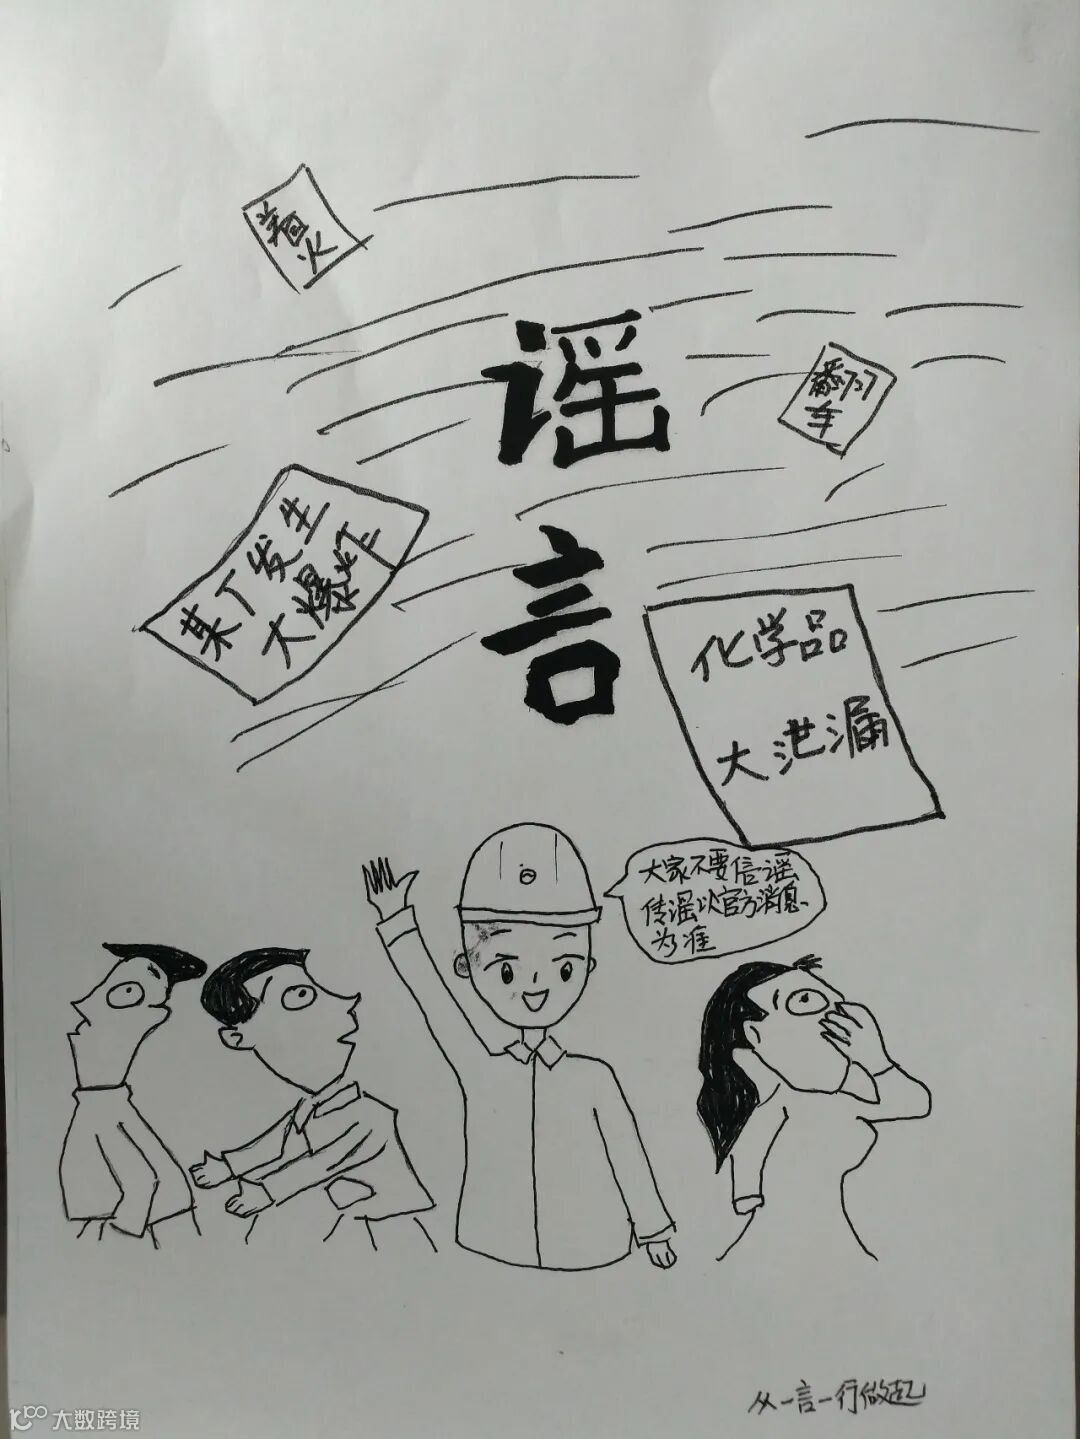 着火
谣
言
翻
车
某厂发生
大爆炸
化学品
大泄漏
大家不要信谣
传谣以官方消息
为准
从一言一行做起
大数跨境